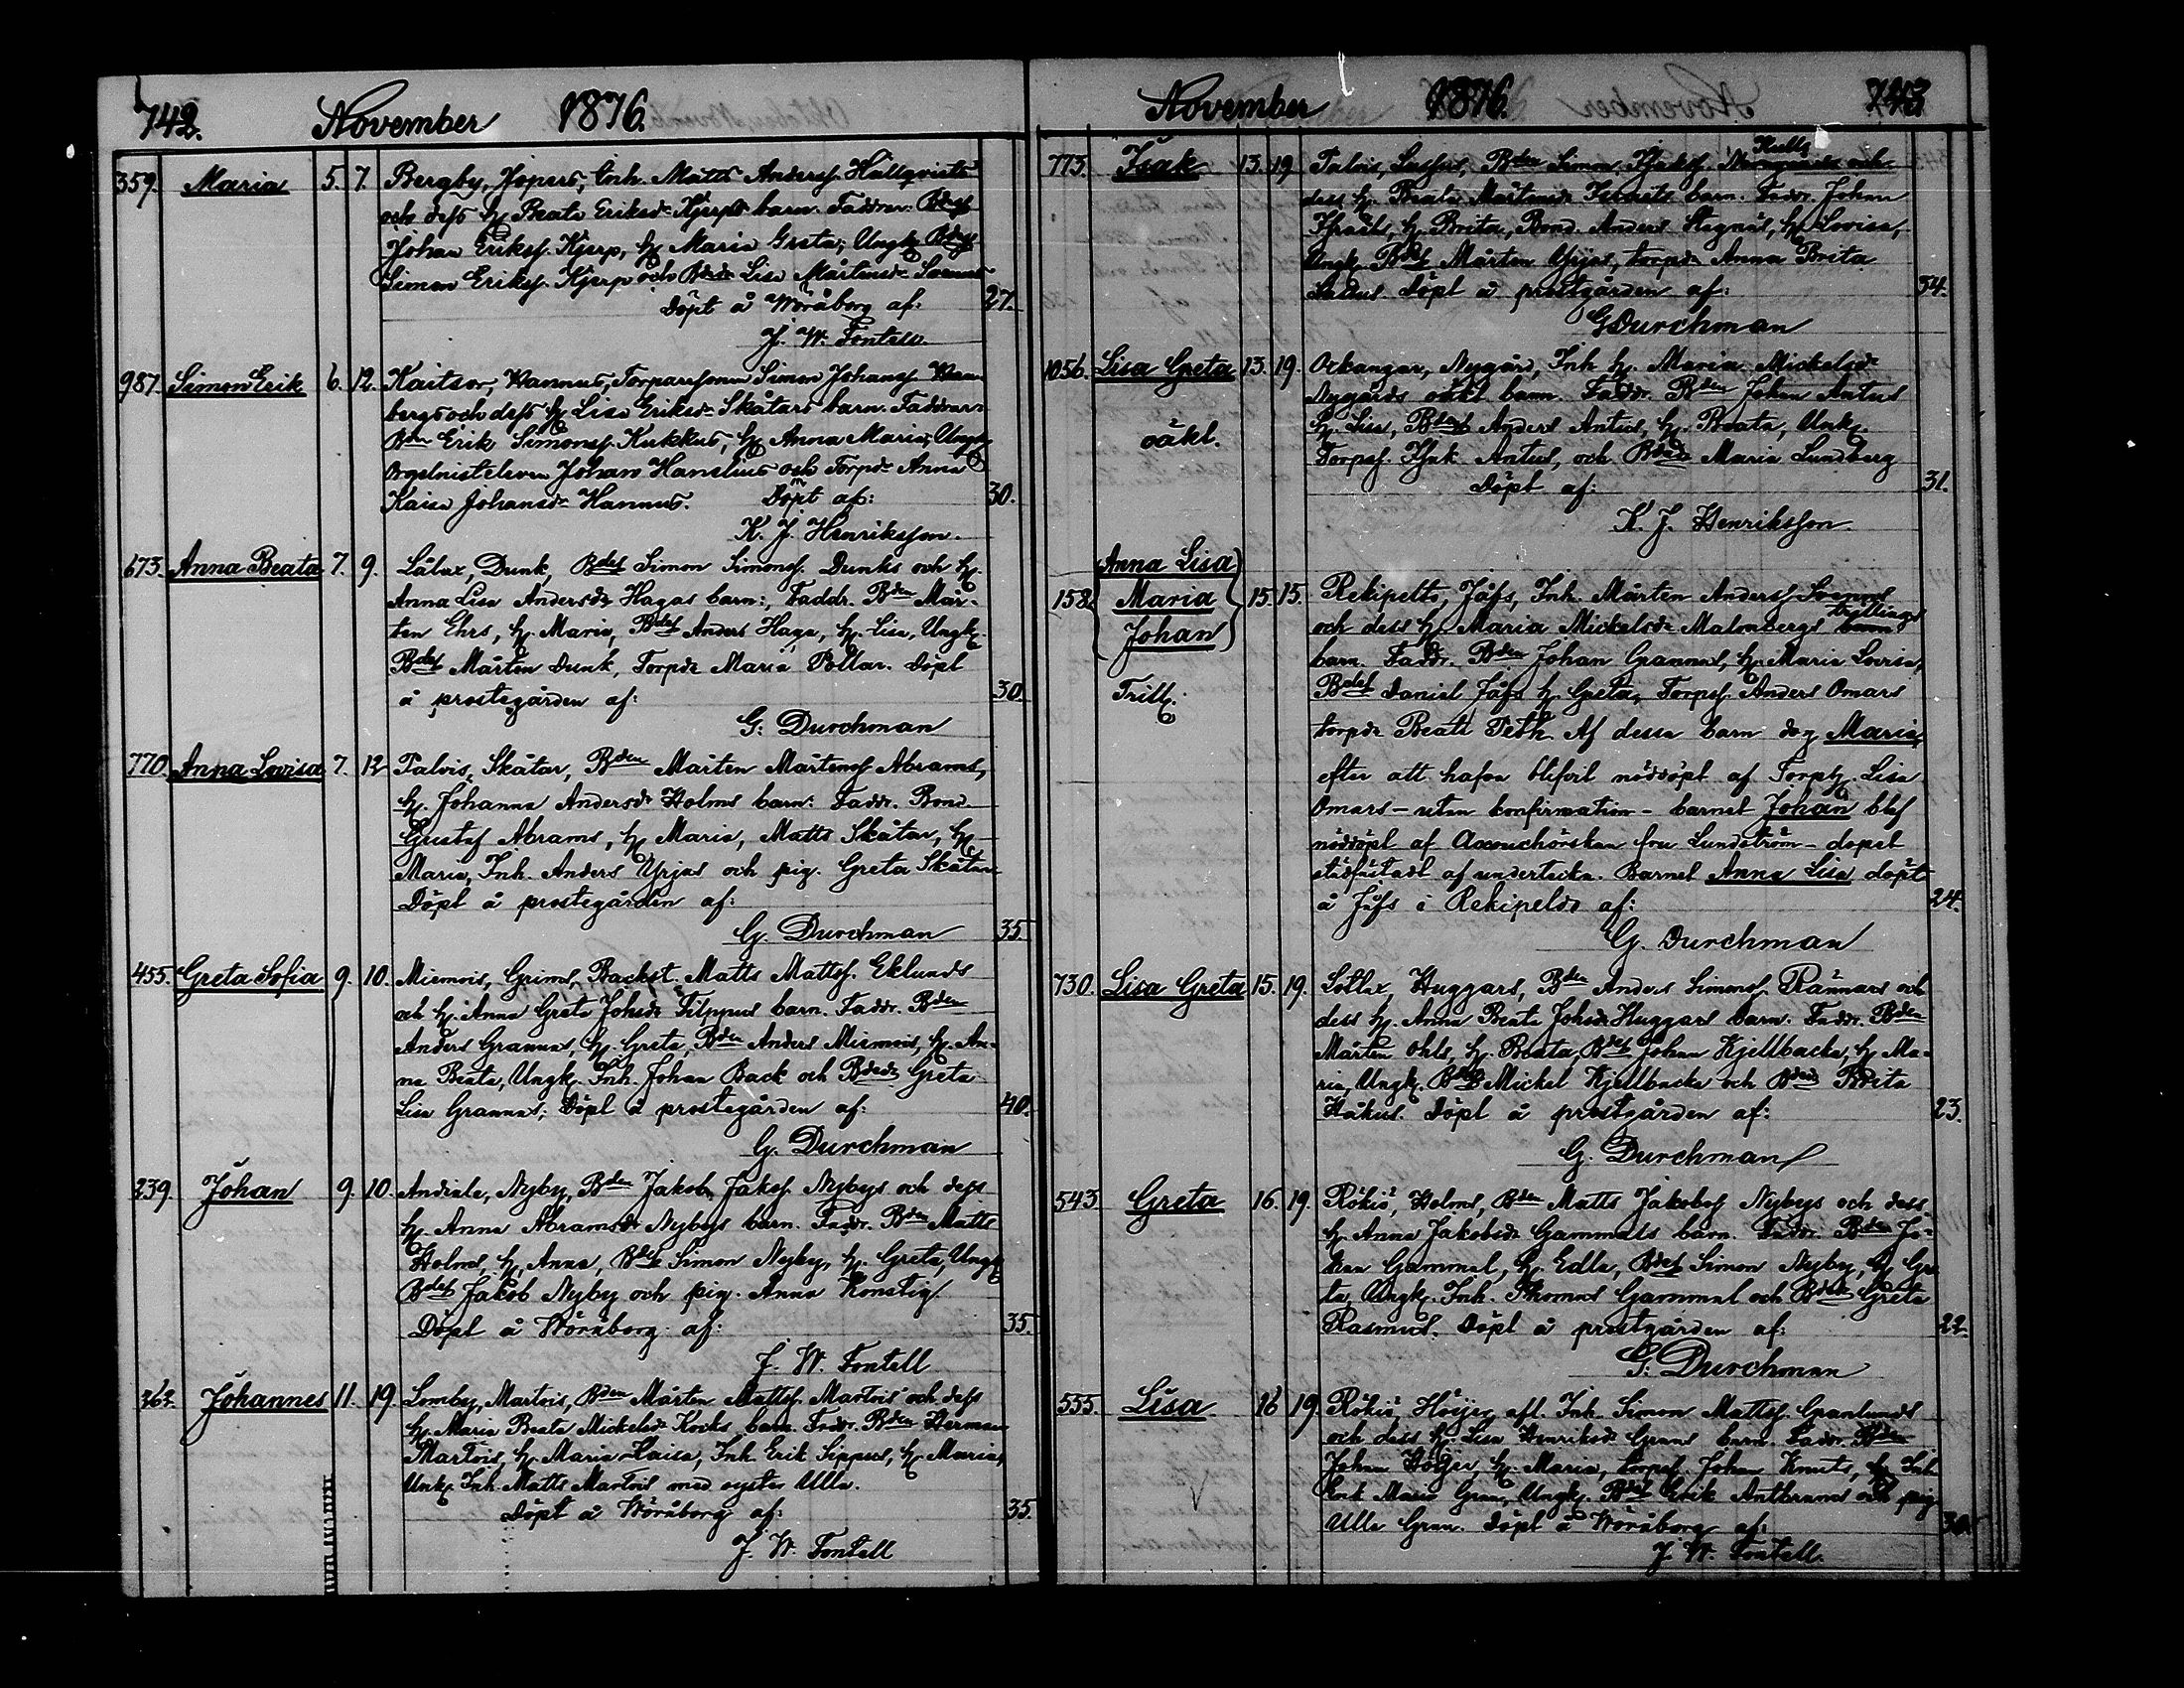 742. November 1876.
359. Maria 5. 7. Bergby, Jopers, Inh. Matts Anderss. Hällqvists
och dess h. Beata Eriksdr Kjerps barn. Faddrar: Bdess
Johan Erikss. Kjerp, h. Maria Greta, Ungk. Bdess
Simon Erikss. Kjerp och Bdedr Lisa Mårtensdr
Döpt å Wöråborg af: 27.
J. W. Fontell
987. Simon Erik 6. 12. Kaitsor, Hannus, Torparesonen Simon Johanss.
bergs och dess h. Lisa Eriksdr Skåtars barn. Faddrar:
Bden Erik Simonss. Kukkus, h. Anna Maria, Ungk.
Orgelnisteleven Johan Hanelius och Torpdr Anna
Kaisa Johansdr Hannus. Döpt af: 30.
K. J. Henriksson.
673. Anna Beata 7. 9. Lålax, Dunk, Bdess Simon Simonss. Dunks och h.
Anna Lisa Andersdr Hagas barn:, Faddr. Bden Mår-
ten Ehrs, h. Maria, Bdess Anders Haga, h. Lisa, Ungk.
Bdess Mårten Dunk, Torpdr Maria Pollar. Döpt
å prostegården af: 30
G. Durchman
770. Anna Lovisa 7. 12 Palvis, Skåtar, Bden Mårten Mårtenss Abrams,
h. Johanna Andersdr Holms barn: Faddr. Bond.
Gustaf Abrams, h. Maria, Matts Skåtar, h.
Maria, Inh. Anders Yrjas och pig. Greta Skåtar
Döpt å prostegården af:
G. Durchman 35
455. Greta Sofia 9. 10. Miemois, Grims, Backst. Matts Mattss. Eklunds
och h. Anna Greta Johsdr Filppus barn. Faddr. Bden
Anders Grannas, h. Greta, Bden Anders Miemois, h. An-
na Beata, Ungk. Inh. Johan Back och Bdedr Greta
Lisa Grannas; Döpt å prostegården af: 40.
G. Durchman
239. Johan 9. 10. Andiala, Nyby, Bden Jakob Jakss. Nybys och dess
h. Anna Abramsdr Nybys barn. Faddr. Bden Matts
Holms, h. Anna, Bdess Simon Nyby, h. Greta, Ungk
Bdess Jakob Nyby och pig. Anna Konstig
Döpt å Wöråborg af: 35.
J. W. Fontell
262. Johannes 11. 19. Lomby, Martois, Bden Mårten Mattss. Martois och dess
h. Maria Beata Mickelsdr Kocks barn. Faddr. Bden Herman
Martois, h. Maria Kaisa, Inh. Erik Sippus, h. Maria,
Unk. Inh. Matts Martois med syster Ulla.
Döpt å Wöråborg af: 35.
J. W. Fontell
November 1876. 743
773. Isak 13. 19 Palvis, Lassus, Bden Simon Isakss. Kulls och
dess h. Beata Mårtensdr Israels barn. Faddr. Johan
Israels, h. Brita, Bond. Anders Stagnäs, h. Lovisa,
Ungk. Bdess Mårten Yrjas, torpdr Anna Brita
Lassus. Döpt å prostgården af: 34.
G Durchman
1056. Lisa Greta 13. 19. Ockangar, Nygård, Inh h. Maria Mickelsdr
Nygårds oäkt barn. Faddr. Bden Johan Antus
h. Lisa, Bdess Anders Antus, h. Beata, Unk.
oäkt.
Torpss. Isak Antus, och Bdedr Maria Lundberg
Döpt af: 31.
K. J. Henriksson.
Anna Lisa
158. Maria 15. 15. Rekipelto, Jåfs, Inh. Mårten Anderss Svenns
Johan och dess h. Maria Mickelsdr Malmbergs trillings
barn. Faddr. Bden Johan Grannas, h. Maria Lovisa,
Trill. Bdess Daniel Jåfs h. Greta, Torpss. Anders Omars
torpdr Beata Peth. Af dessa barn dog Maria,
efter att hafva blifvit nöddöpt af Torph. Lisa
Omars – utan konfirmation – barnet Johan blef
nöddöpt af Accouchörskan fru Lundström – dopet
stadfästadt af underteckn. Barnet Anna Lisa döpt
å Jåfs i Rekipeldo af: 24.
G. Durchman
730. Lisa Greta 15. 19. Lotlax, Huggars, Bden Anders Simonss. Rännars och
dess h. Anna Beata Johsdr Huggars barn. Faddr. Bden
Mårten Ohls, h. Beata, Bdess Johan Kjellbacka, h. Ma-
ria, Ungk. Bdess Mickel Kjellbacka och Bdedr Brita
Håkus. Döpt å prostgården af: 23.
G. Durchman
543 Greta 16. 19. Rökiö, Holms, Bden Matts Jakobss Nybys och dess
h. Anna Jakobsdr Gammals barn. Faddr. Bden Jo-
han Gammal, h. Edla, Bdess Simon Nyby, h. Gre
ta, Ungk. Inh. Thomas Gammal och Bdedr Greta
Rasmus. Döpt å prostgården af: 22.
G. Durchman
555. Lisa 16 19. Rökiö, Höijer, afl. Inh. Simon Mattss. Granlunds
och dess h. Lisa Henriksdr Grans barn. Faddr. Bden
Johan Höijer, h. Maria, torpss. Johan Knuts, h. Inh
Maria Gran, Ungk. Bdess Erik Antbrams och pig
Ulla Gran. Döpt å Wöråborg af: 30.
J. W. Fontell.